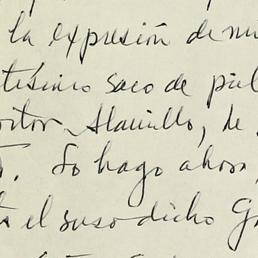 la expresión de mi
tésimo saco de piel
Alamillo, de
. Lo hago ahora,
el susodicho G